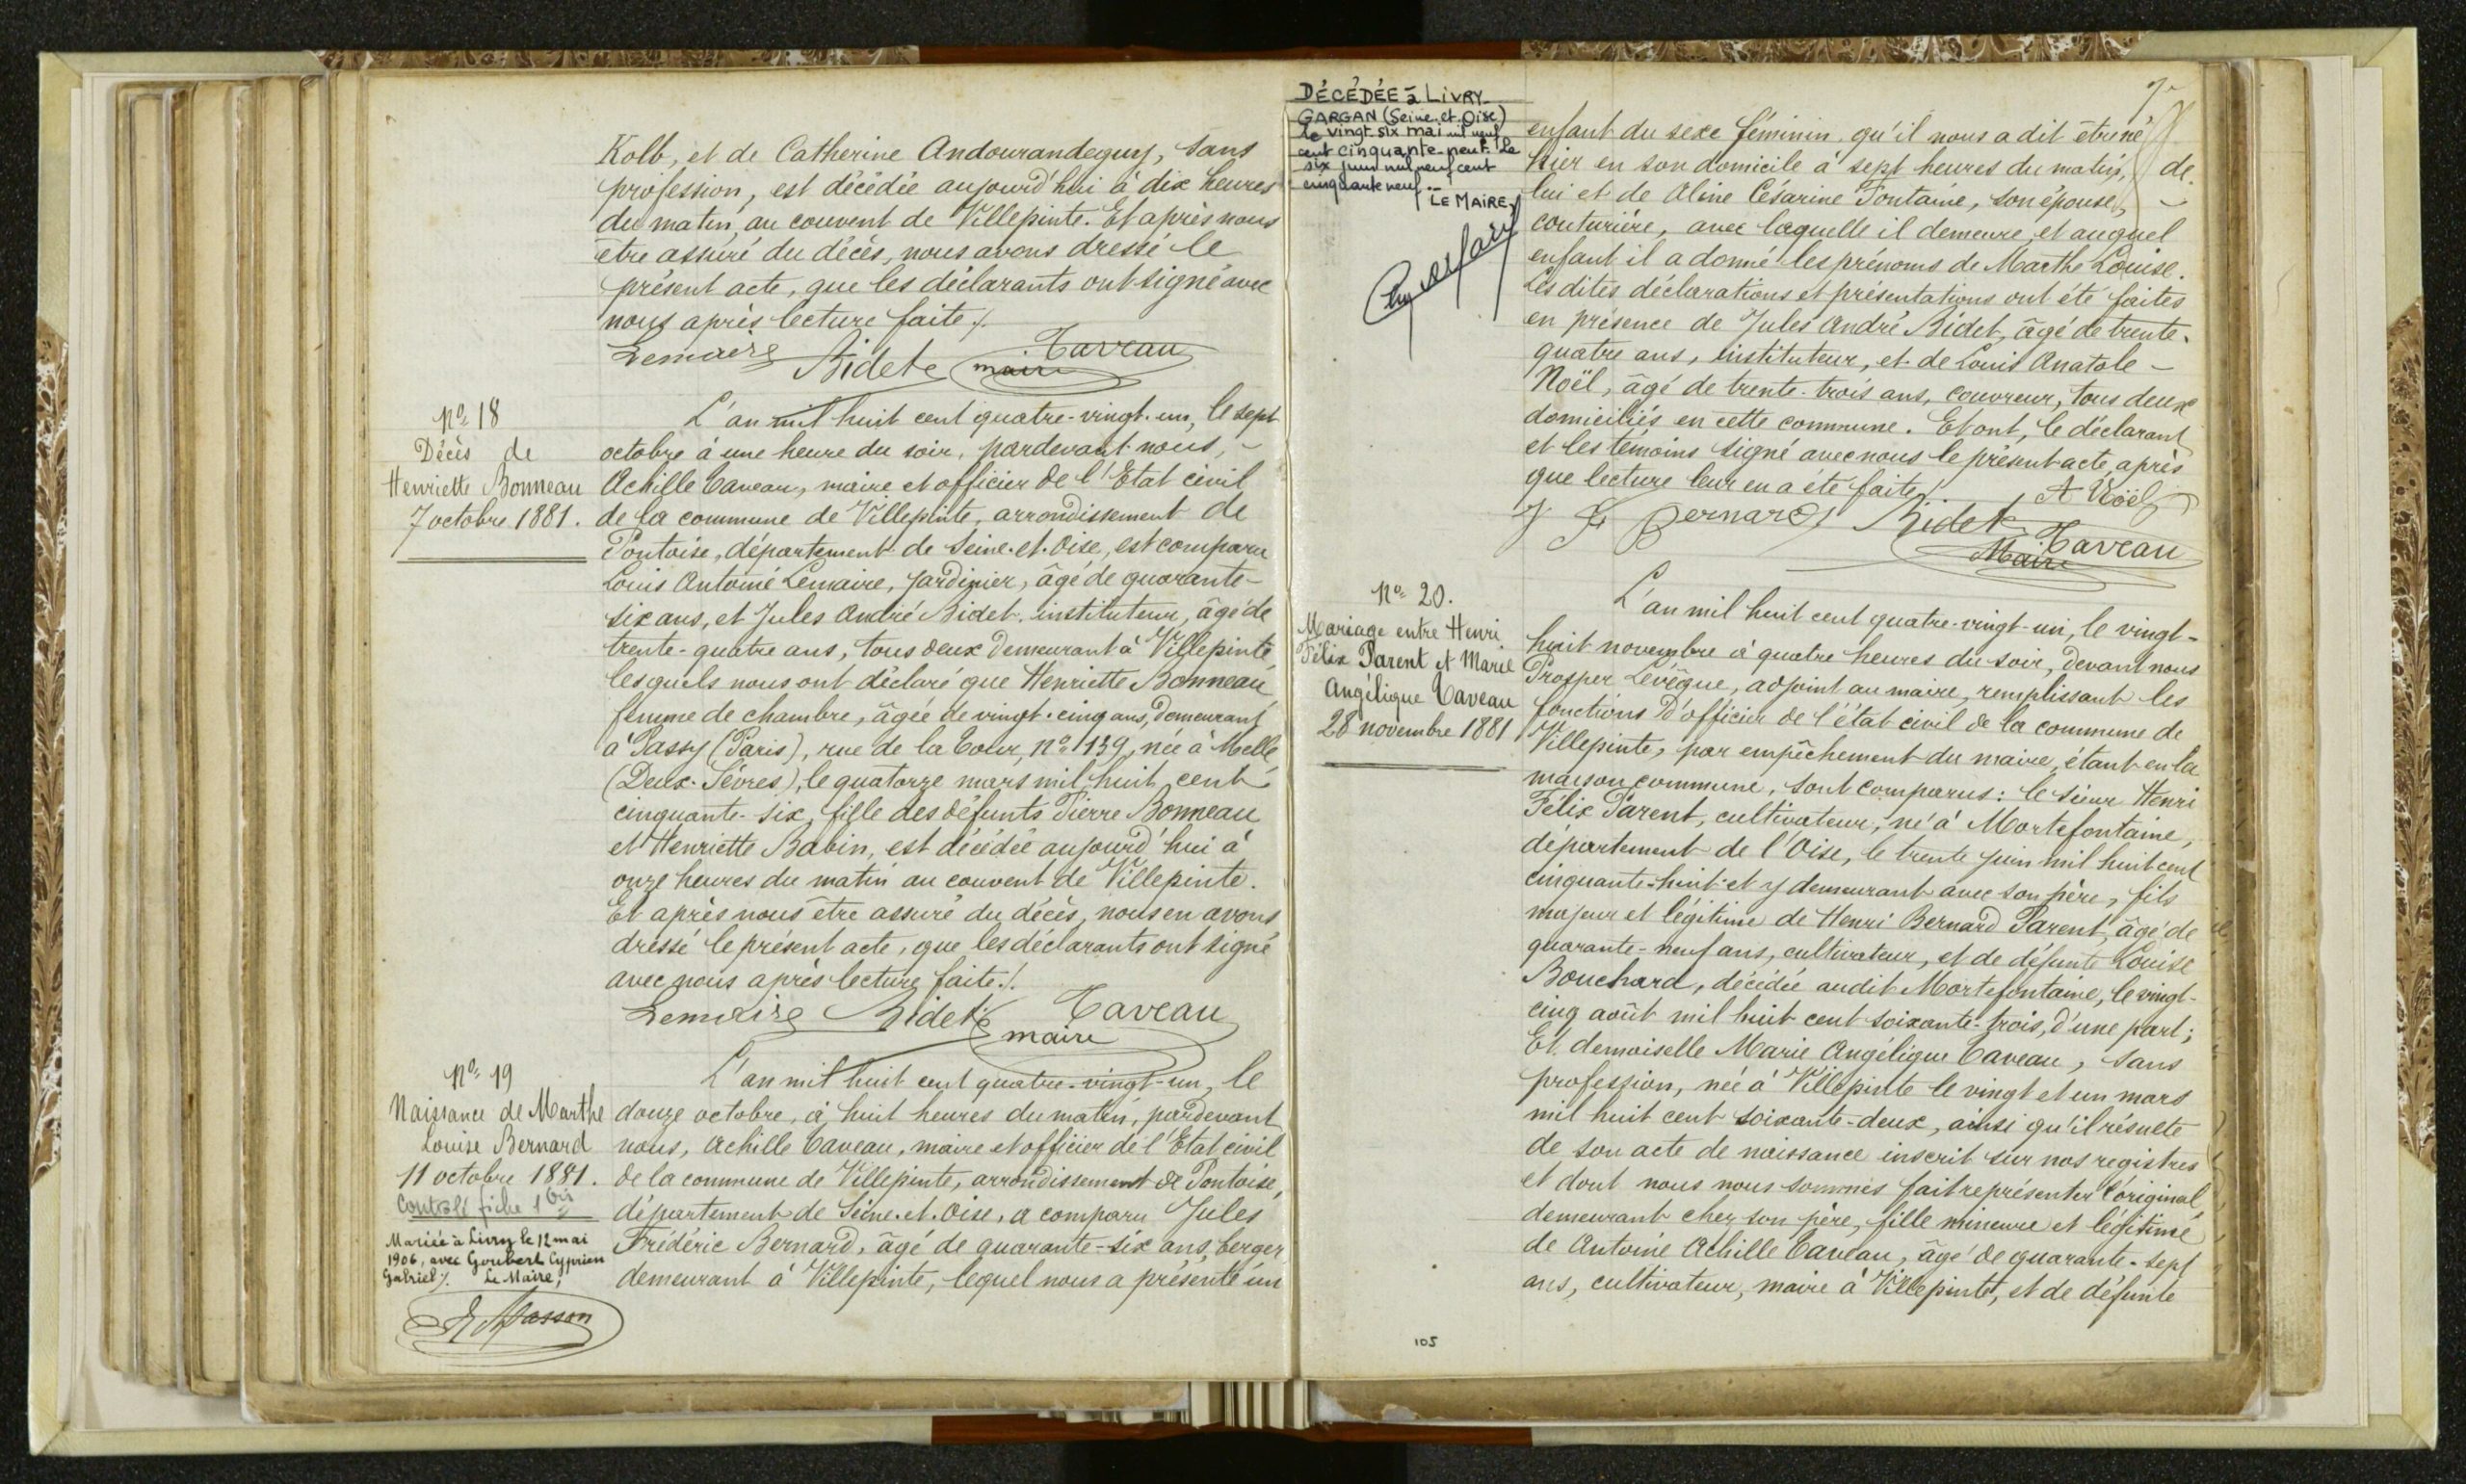 Kolb, et de Catherine Andourandeguy, sans
profession, est décédée aujourd'hui à dix heures
du matin, au couvent de Villepinte. Et après nous
être assuré du décès, nous avons dressé le
présent acte, que les déclarants ont signé avec
nous après lecture faite ./.
Lemaire Bidet Taveau
maire
No 18
Décès de
Henriette Bonneau
7 octobre 1881.
L'an mil huit cent quatre-vingt-un, le sept
octobre à une heure du soir, pardevant nous, -
Achille Taveau, maire et officier de l'Etat civil
de la commune de Villepinte, arrondissement de
Pontoise, département de Seine-et-Oise, est comparu
Louis Antoine Lemaire, jardinier, âgé de quarante-
six ans, et Jules André Bidet, instituteur, âgé de
trente-quatre ans, tous deux demeurant à Villepinte,
lesquels nous ont déclaré que Henriette Bonneau,
femme de chambre, âgée de vingt-cinq ans, demeurant
à Passy (Paris), rue de la Tour, no 139, née à Melle
(Deux-Sèvres), le quatorze mars mil huit cent
cinquante-six, fille des défunts Pierre Bonneau
et Henriette Babin, est décédée aujourd'hui à
onze heures du matin au couvent de Villepinte.
Et après nous être assuré du décès, nous en avons
dressé le présent acte, que les déclarants ont signé
avec nous après lecture faite ./.
Lemaire Bidet Taveau
maire
No 19
Naissance de Marthe
Louise Bernard
11 octobre 1881.
Contrôlé fiche 1 bis
Mariée à Livry le 12 mai
1906, avec Goubert Cyprien
Gabriel ./. Le Maire,
E Masson
L'an mil huit cent quatre-vingt-un, le
douze octobre, à huit heures du matin, pardevant
nous, Achille Taveau, maire et officier de l'Etat civil
de la commune de Villepinte, arrondissement de Pontoise,
département de Seine-et-Oise, a comparu Jules
Frédéric Bernard, âgé de quarante-six ans, berger
demeurant à Villepinte, lequel nous a présenté un
DÉCÉDÉE à LIVRY
GARGAN (Seine-et-Oise)
le vingt six mai mil neuf
cent cinquante-neuf. Le
six juin mil neuf cent
cinquante neuf. -
LE MAIRE,
enfant du sexe féminin, qu'il nous a dit être né
hier en son domicile à sept heures du matin, de
lui et de Aline Césarine Fontaine, son épouse, -
couturière, avec laquelle il demeure, et auquel
enfant il a donné les prénoms de Marthe Louise.
Les dites déclarations et présentations ont été faites
en présence de Jules André Bidet, âgé de trente-
quatre ans, instituteur, et de Louis Anatole -
Noël, âgé de trente-trois ans, couvreur, tous deux
domiciliés en cette commune. Et ont, le déclarant
et les témoins signé avec nous le présent acte, après
que lecture leur en a été faite ./.
A Noël
J F Bernard Bidet Taveau
Maire
No 20.
Mariage entre Henri
Félix Parent et Marie
Angélique Taveau
28 novembre 1881
L'an mil huit cent quatre-vingt-un, le vingt-
huit novembre à quatre heures du soir, devant nous
Prosper Lévêque, adjoint au maire, remplissant les
fonctions d'officier de l'état civil de la commune de
Villepinte, par empêchement du maire, étant en la
maison commune, sont comparus : le sieur Henri
Félix Parent, cultivateur, né à Mortefontaine,
département de l'Oise, le trente juin mil huit cent
cinquante-huit et y demeurant avec son père, fils
majeur et légitime de Henri Bernard Parent, âgé de
quarante-neuf ans, cultivateur, et de défunte Louise
Bouchard, décédée audit Mortefontaine, le vingt-
cinq août mil huit cent soixante-trois, d'une part ;
Et demoiselle Marie Angélique Taveau, sans
profession, née à Villepinte le vingt et un mars
mil huit cent soixante-deux, ainsi qu'il résulte
de son acte de naissance inscrit sur nos registres
et dont nous nous sommes fait représenter l'original,
demeurant chez son père, fille mineure et légitime
de Antoine Achille Taveau, âgé de quarante-sept
ans, cultivateur, maire à Villepinte, et de défunte
105